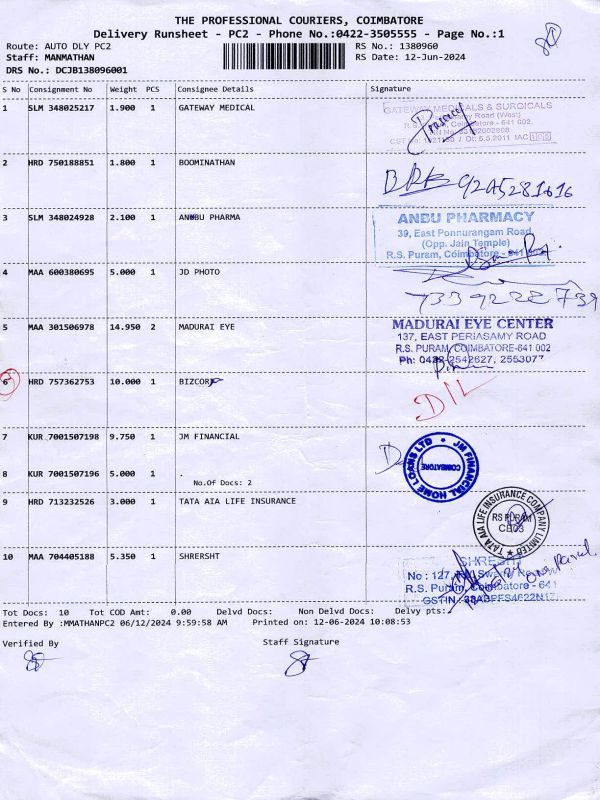 THE PROFESSIONAL COURIERS, COIMBATORE
Delivery Runsheet - PC2 - Phone No.:0422-3505555 - Page No.:1
Route: AUTO DLY PC2 RS No.: 1380960
Staff: MANMATHAN RS Date: 12-Jun-2024
DRS No.: DCJB138096001
S No Consignment No Weight PCS Consignee Details Signature
1 SLM 348025217 1.900 1 GATEWAY MEDICAL
GATEWAY MEDICALS & SURGICALS
Road (West)
R.S. Coimbatore - 641 002.
2 HRD 750188851 1.800 1 BOOMINATHAN
3 SLM 348024928 2.100 1 ANBU PHARMA
ANBU PHARMACY
39, East Ponnurangam Road
(Opp. Jain Temple)
R.S. Puram, Coimbatore - 641
4 MAA 600380695 5.000 1 JD PHOTO
7339228739
5 MAA 301506978 14.950 2 MADURAI EYE
MADURAI EYE CENTER
137, EAST PERIASAMY ROAD
R.S. PURAM, COIMBATORE-641 002
Ph: 0422-2542627, 2553077
6 HRD 757362753 10.000 1 BIZCORP
DIL
7 KUR 7001507198 9.750 1 JM FINANCIAL
JM FINANCIAL HOME LOANS LTD
COIMBATORE
8 KUR 7001507196 5.000 1 .
No.Of Docs: 2
9 HRD 713232526 3.000 1 TATA AIA LIFE INSURANCE
TATA AIA LIFE INSURANCE COMPANY LIMITED
RS PURAM
CB03
10 MAA 704405188 5.350 1 SHRERSHT
No : 127,
R.S. Puram, Coimbatore - 641
Tot Docs: 10 Tot COD Amt: 0.00 Delvd Docs: Non Delvd Docs: Delvy pts:
Entered By :MMATHANPC2 06/12/2024 9:59:58 AM Printed on: 12-06-2024 10:08:53
Verified By Staff Signature